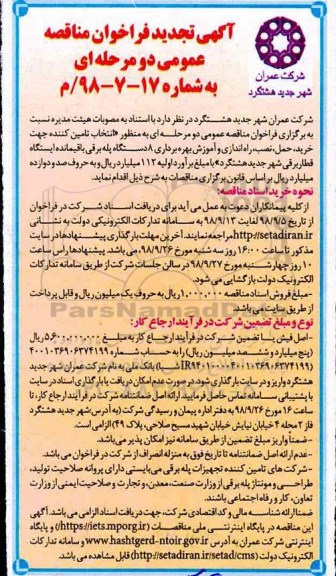 آگهی تجدید فراخوان مناقصه
عمومی دو مرحله ای
به شماره ۱۷-۷-۹۸/م
شرکت عمران
شهر جدید هشتگرد
شرکت عمران شهر جدید هشتگرد در نظر دارد با استناد به مصوبات هیئت مدیره نسبت
به برگزاری فراخوان مناقصه عمومی دو مرحله ای به منظور «انتخاب تامین کننده جهت
خرید، حمل، نصب، راه اندازی و آموزش بهره برداری ۸ دستگاه پله برقی باقیمانده ایستگاه
قطار برقی شهر جدید هشتگرد» با مبلغ برآورد اولیه ۱۱۲ میلیارد ریال و به حروف صد و دوازده
میلیارد ریال بر اساس قانون برگزاری مناقصات به شرح ذیل اقدام نماید.
نحوه خرید اسناد مناقصه:
از کلیه پیمانکاران دعوت به عمل می آید برای دریافت اسناد شرکت در فراخوان
از تاریخ ۹۸/۹/۵ لغایت ۹۸/۹/۱۳ به سامانه تدارکات الکترونیکی دولت به نشانی
http://setadiran.ir مراجعه نمایند. آخرین مهلت بارگذاری پیشنهادها در سایت
مذکور تا ساعت ۱۶:۰۰ روز سه شنبه مورخ ۹۸/۹/۲۶ می باشد. پیشنهادها راس ساعت
۱۰ روز چهارشنبه مورخ ۹۸/۹/۲۷ در سالن جلسات شرکت از طریق سامانه تدارکات
الکترونیک دولت بازگشایی می شود.
-مبلغ فروش اسناد مناقصه ۱,۰۰۰,۰۰۰ ریال به حروف یک میلیون ریال و قابل پرداخت
از طریق سایت می باشد.
نوع و مبلغ تضمین شرکت در فرآیند ارجاع کار:
-اصل فیش یا تضمین شرکت در فرآیند ارجاع کار به مبلغ ۵,۶۰۰,۰۰۰,۰۰۰ ریال
(پنج میلیارد و ششصد میلیون ریال) را به حساب شماره ۴۰۰۱۰۳۶۹۰۶۳۷۴۱۹۹
بانک ملی به نام شرکت عمران شهر جدید
هشتگرد واریز و در سایت بارگذاری شود. در صورت عدم امکان دریافت یا بارگذاری اسناد در سایت
با پشتیبانی سامانه تماس حاصل فرمایید. ارائه اصل ضمانتنامه شرکت در فرآیند ارجاع کار، تا
ساعت ۱۶ مورخ ۹۸/۹/۲۶ به دفتر اداره پیمان و رسیدگی شرکت (به آدرس: شهر جدید هشتگرد
فاز ۲ محله ۴ خیابان نیایش خیابان شهید مسیح صلاحی، پلاک ۴۹) الزامی است.
-ضمناً واریز مبلغ تضمین از طریق سامانه نیز امکان پذیر می باشد.
-عدم ارائه اصل ضمانتنامه تا تاریخ فوق به منزله انصراف از شرکت در فراخوان می باشد.
-شرکت های تامین کننده تجهیزات پله برقی می بایستی دارای پروانه صلاحیت تولید،
طراحی و مونتاژ پله برقی از وزارت صنعت، معدن، و تجارت و صلاحیت ایمنی از وزارت
تعاون، کار و رفاه اجتماعی باشند.
ضمنا ارائه شناسه مالی و کد اقتصادی شرکت، جهت دریافت اسناد الزامی می باشد. آگهی
این مناقصه در پایگاه اینترنتی ملی مناقصات (https://iets.mporg.ir) و پایگاه
اینترنتی شرکت عمران به آدرس www.hashtgerd-ntoir.gov.ir و سامانه تدارکات
الکترونیک دولت (http://setadiran.ir/setad/cms) قابل مشاهده می باشد.